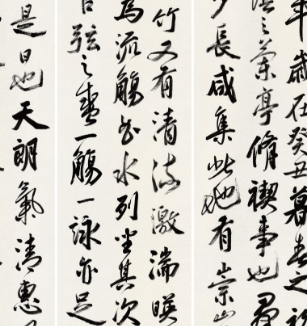 年歲在癸丑暮春之
之蘭亭脩禊事也
少長咸集此地有崇山
竹又有清流激湍暎
為流觴曲水列坐其次
弦之盛一觴一詠亦足
是日也天朗氣清惠